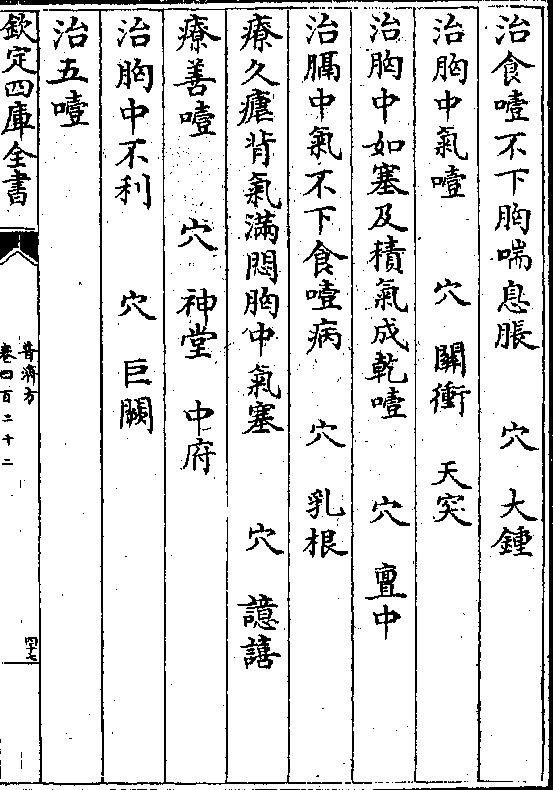 治食噎不下胸喘息脹　穴　大鍾
治胸中氣噎　穴　關衝　天突
治胸中如塞及積氣成乾噎　穴　亶中
治膈中氣不下食噎病　穴　乳根
療久瘧背氣滿悶胸中氣塞　穴　譩譆
療善噎　穴　神堂　中府
治胸中不利　穴　巨闕
治五噎
欽定四庫全書
普濟方
卷四百二十二
四十七